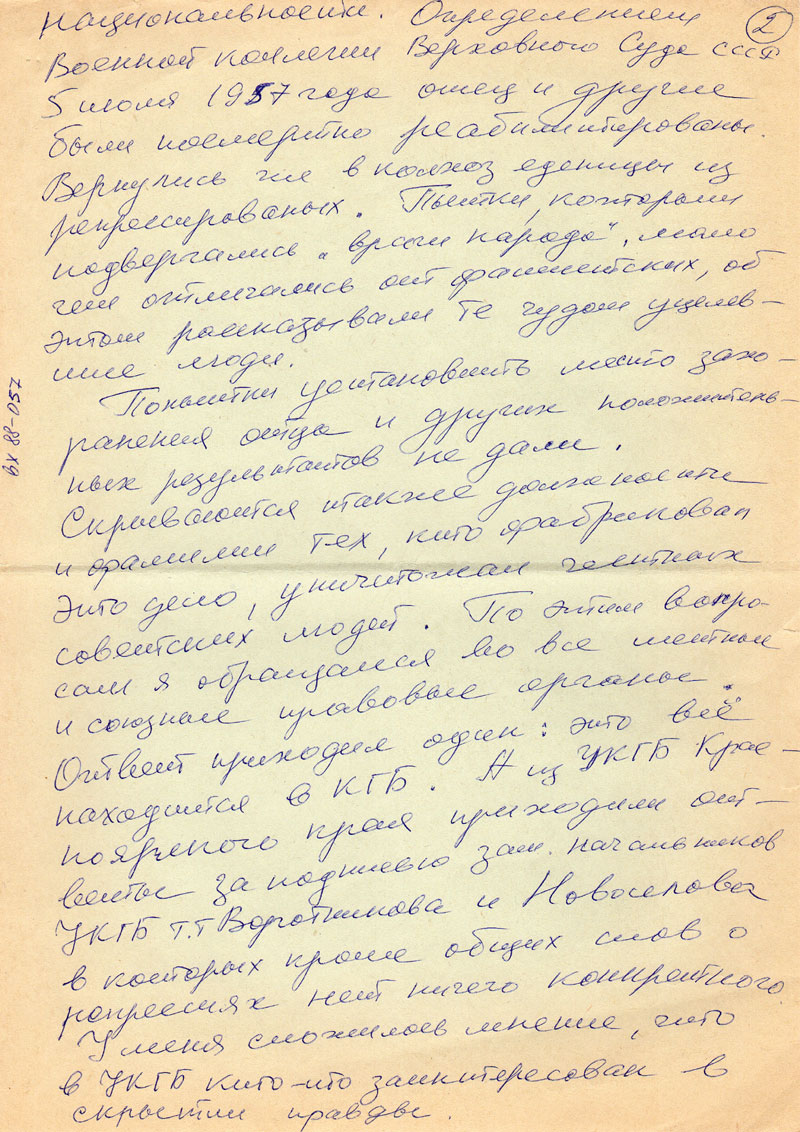 2
национальности. Определением
Военной коллегии Верховного Суда СССР
5 июля 1957 года отец и другие
были посмертно реабилитированы.
Вернулись же в колхоз еденицы из
репрессированых. Пытки, которым
подвергались „враги народа", мало
чем отличались от фашистских, об
этом рассказывали те чудом уцелев-
шие люди.
Попытки установить место захо-
ранения отца и других положитель-
ных результатов не дали.
Скрываются также должности
и фамилии тех, кто фабриковал
это дело, уничтожал честных
советских людей. По этим вопро-
сам я обращался во все местные
и союзные правовые органы.
Ответ приходил один: это всё
находится в КГБ. А из УКГБ Крас-
ноярского края приходили от-
веты за подписью зам. начальников
УКГБ т.т Воротникова и Новоселова
в которых кроме общих слов о
репрессиях нет ничего конкретного.
У меня сложилось мнение, что
в УКГБ кто-то заинтересован в
скрытии правды.
вх 88-057